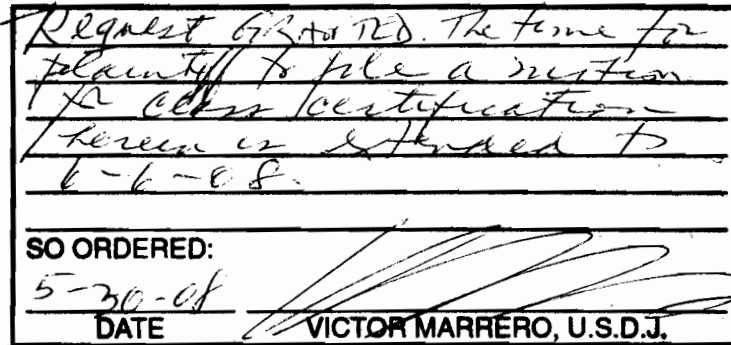 Request GRANTED. The time for
plaintiff to file a motion
for class certification
herein is extended to
6-6-08.
SO ORDERED:
5-30-08
DATE VICTOR MARRERO, U.S.D.J.